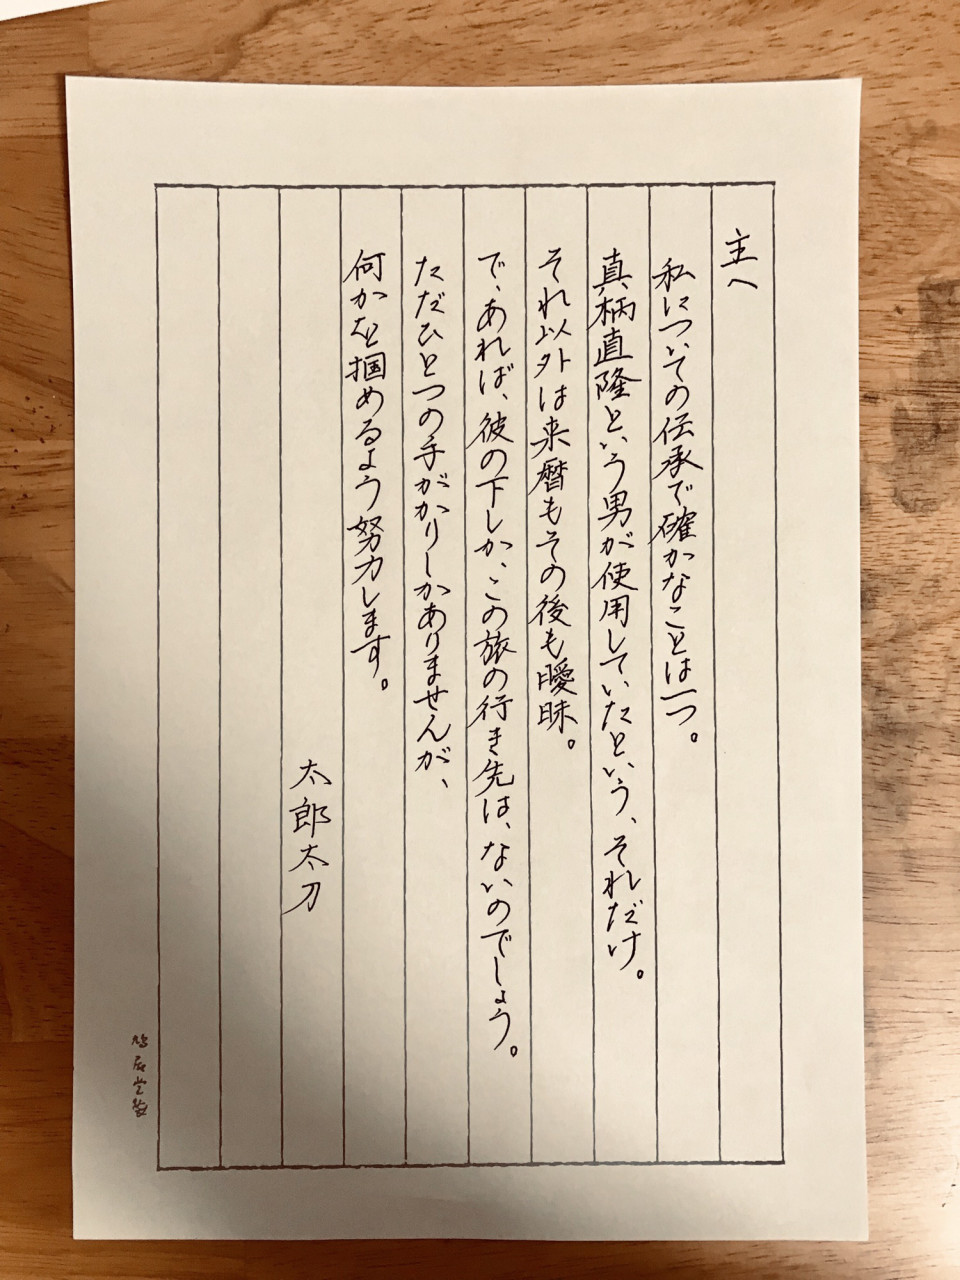 主へ
私についての伝承で確かなことは一つ。
真柄直隆という男が使用していたという、それだけ。
それ以外は来暦もその後も曖昧。
で、あれば、彼の下しか、この旅の行き先は、ないのでしょう。
ただひとつの手がかりしかありませんが、
何かを掴めるよう努力します。
太郎太刀
鳩居堂製